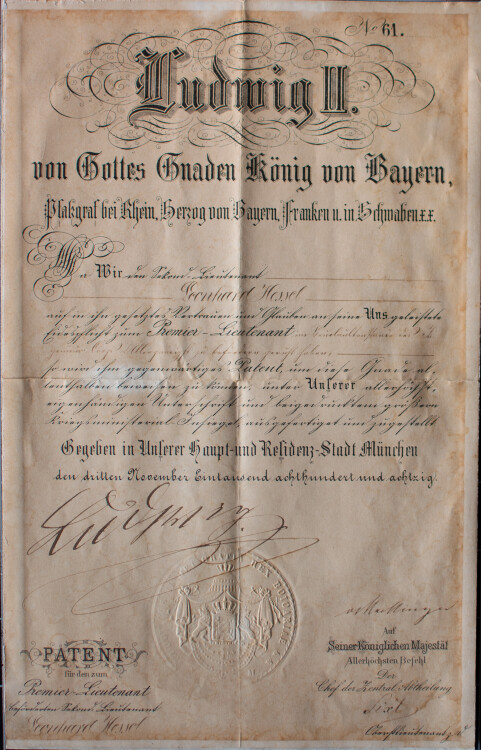 No 61.
Ludwig II.
von Gottes Gnaden König von Bayern,
Pfalzgraf bei Rhein, Herzog von Bayern, Franken u. in Schwaben x.x.
Da Wir den Sekond-Lieutenant
Leonhard Hessel
auf in ihn gesetztes Vertrauen und Glauten an seine Uns geleistete
Eidespflicht zum Premier-Lieutenant im
so wir ihm gegenwärtiges Patent, um diese Gnade al-
lenthalben beweisen zu können, unter Unserer allerhöchst-
eigenhändigen Unterschrift und beigedrucktem größern
Kriegsministerial-Insiegel, ausgefertiget und zugestellt
Gegeben in Unserer Haupt-und Residenz-Stadt München
den dritten November Eintausend achthundert und achtzig.
Ludwig
PATENT
für den zum
Premier-Lieutenant
beförderten Sekond-Lieutenant
Leonhard Hessel
Auf
Seiner Königlichen Majestät
Allerhöchsten Befehl
Der
Chef der Zentral-Abtheilung
Oberstlieutenant